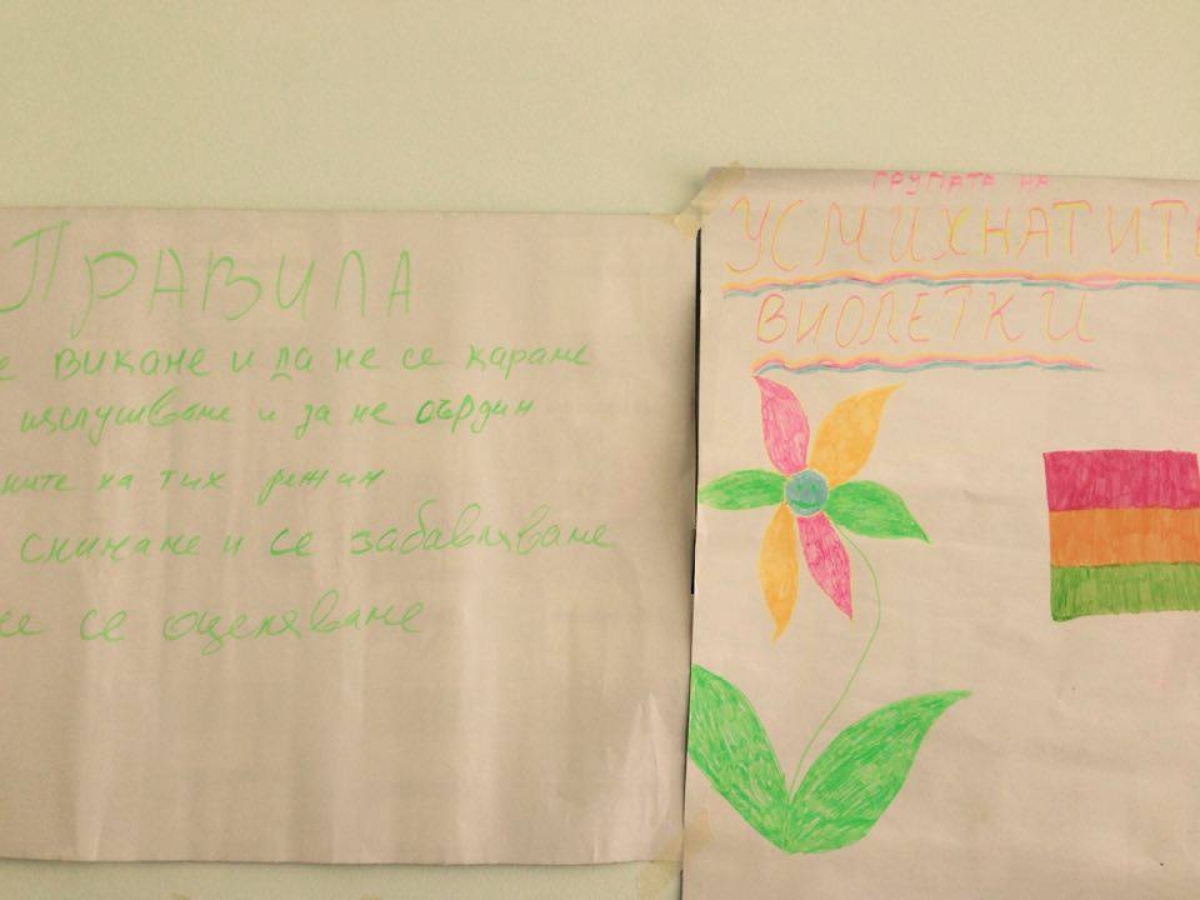 ПРАВИЛА
е викане и да не се караме
изслушваме и да не сърдим
ките на тих режим
снимаме и се забавляваме
не се оценяваме
ГРУПАТА НА
УСМИХНАТИТЕ
ВИОЛЕТКИ